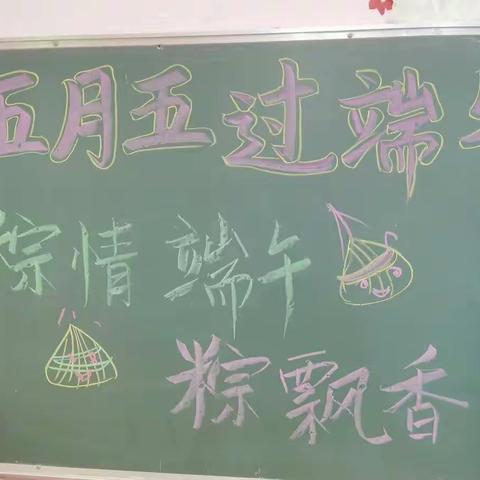 五月五过端午
粽情端午
粽飘香